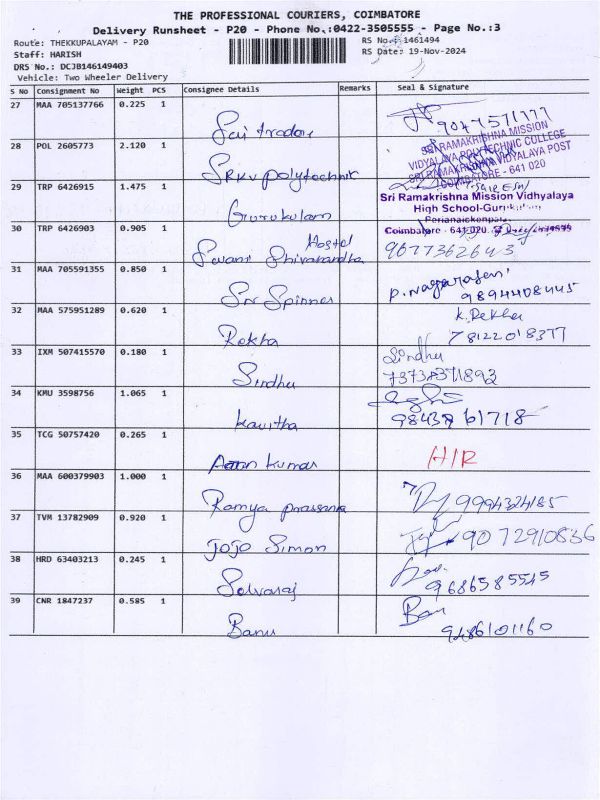 THE PROFESSIONAL COURIERS, COIMBATORE
Delivery Runsheet - P20 - Phone No.:0422-3505555 - Page No.:3
Route: THEKKUPALAYAM - P20 RS No.: 1461494
Staff: HARISH RS Date: 19-Nov-2024
DRS No.: DCJB146149403
Vehicle: Two Wheeler Delivery
S No Consignment No Weight PCS Consignee Details Remarks Seal & Signature
27 MAA 705137766 0.225 1 Sai tradore 9047571777
28 POL 2605773 2.120 1 SRKV polytechnic SRI RAMAKRISHNA MISSION
VIDYALAYA POLYTECHNIC COLLEGE
SRI RAMAKRISHNA VIDYALAYA POST
COIMBATORE - 641 020
29 TRP 6426915 1.475 1 Gurukulam Sri Ramakrishna Mission Vidhyalaya
High School-Gurukulam
Perianaickenpalayam
Coimbatore - 641 020
30 TRP 6426903 0.905 1 Swami Shivanandha Hostel 9077362643
31 MAA 705591355 0.850 1 Sri Spinner P. Nagarajan
9894408445
32 MAA 575951289 0.620 1 Rekha K. Rekha
78122018377
33 IXM 507415570 0.180 1 Sindhu Sindhu
7373871892
34 KMU 3598756 1.065 1 Kavitha 98437 61718
35 TCG 50757420 0.265 1 Arun kumar H/R
36 MAA 600379903 1.000 1 Ramya prassana 9994324185
37 TVM 13782909 0.920 1 JOJO Simon 9072910836
38 HRD 63403213 0.245 1 Selvaraj 9686585545
39 CNR 1847237 0.585 1 Banu Banu
9486101160